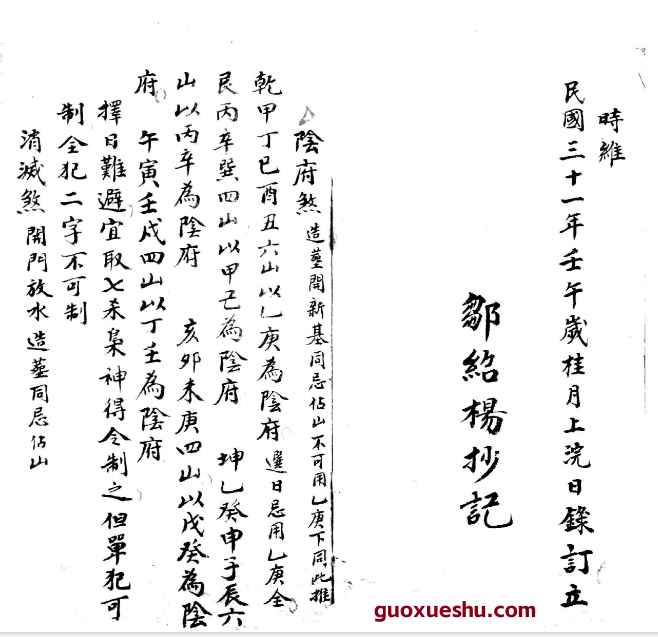 時維
民國三十一年壬午歲桂月上浣日錄訂立
鄒紹楊抄記
陰府煞 造墓開新基同忌佔山不可用乙庚下同此推
乾甲丁巳酉丑六山以乙庚為陰府 選日忌用乙庚全
艮丙辛巽四山以甲己為陰府 坤乙癸申子辰六
山以丙辛為陰府 亥卯未庚四山以戊癸為陰
府 午寅壬戌四山以丁壬為陰府
擇日難避宜取七杀梟神得令制之但單犯可
制全犯二字不可制
消滅煞 開門放水造墓同忌佔山
guoxueshu.com